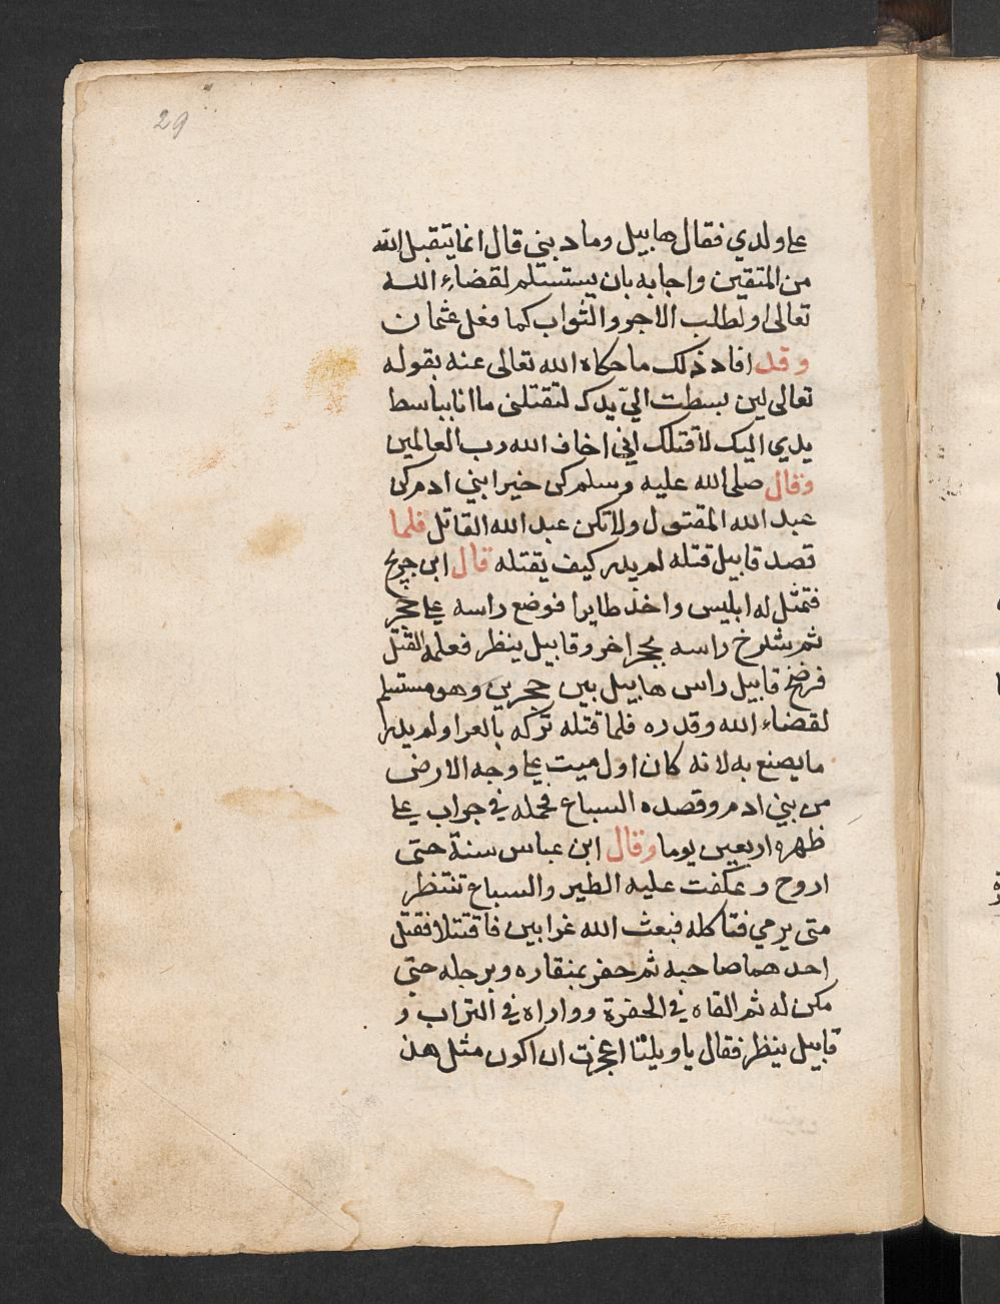 29
علي ولدي فقال هابيل وما دبني قال انما يتقبل الله
من المتقين واجابه بان يستسلم لقضاء الله
تعالى او لطلب الاجر والثواب كما فعل عثمان
وقد افاد ذلك ما حكاه الله تعالى عنه بقوله
تعالى لين بسطت اليّ يدك لتقتلني ما انا بباسط
يدي اليك لاقتلك اني اخاف الله رب العالمين
وقال صلى الله عليه وسلم كن خير ابني ادم كن
عبد الله المقتول ولا تكن عبد الله القاتل فلما
قصد قابيل قتله لم يدر كيف يقتله قال ابن جريج
فتمثل له ابليس واخذ طايرا فوضع راسه علي حجر
ثم شدخ راسه بحجر اخر وقابيل ينظر فعلمه القتل
فرضخ قابيل راس هابيل بين حجرين وهو مستسلم
لقضاء الله وقدره فلما قتله تركه بالعرا ولم يدر
ما يصنع به لانه كان اول ميت علي وجه الارض
من بني ادم وقصده السباع فحمله في جراب علي
ظهره اربعين يوما وقال ابن عباس سنة حتى
اروح وعكفت عليه الطير والسباع تنتظر
متى يرمي فتاكله فبعث الله غرابين فاقتتلا فقتل
احدهما صاحبه ثم حفر بمنقاره وبرجله حتى
مكن له ثم القاه في الحفرة وواراه في التراب و
قابيل ينظر فقال ياويلتا اعجزت ان اكون مثل هذ